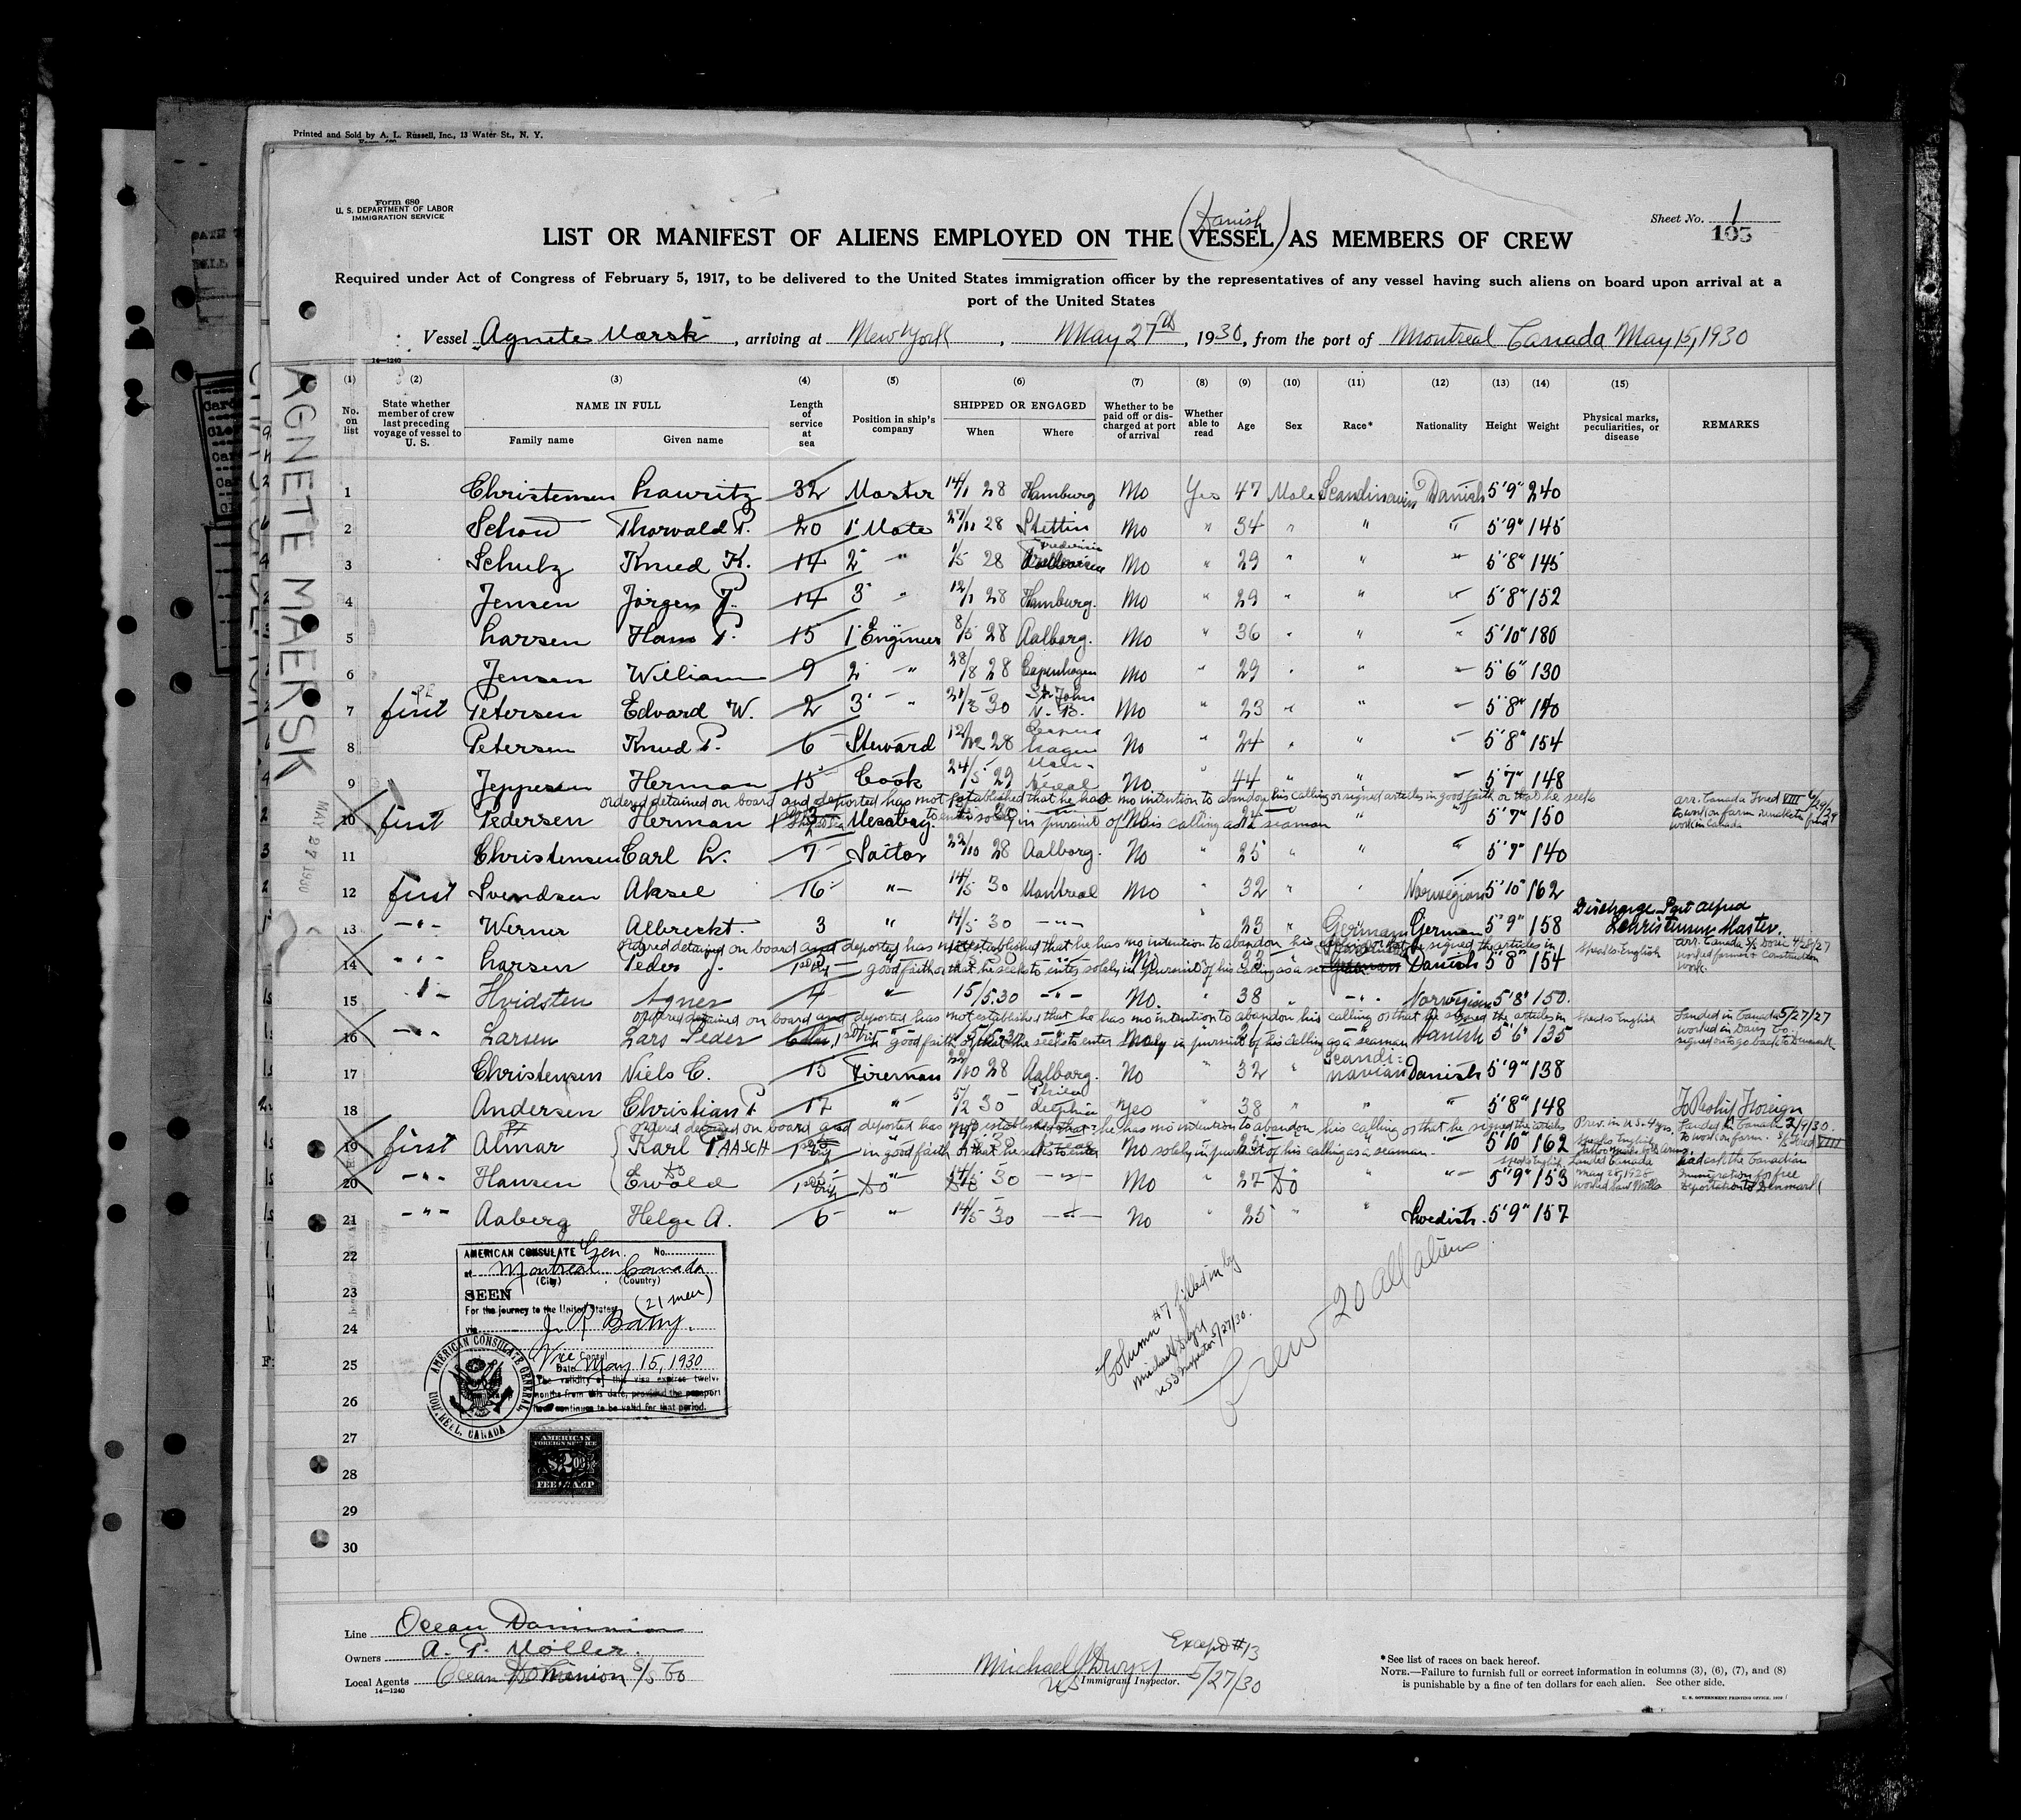 Printed and Sold by A. L. Russell, Inc., 13 Water St., N. Y.
Form 680
U. S. DEPARTMENT OF LABOR
IMMIGRATION SERVICE
Sheet No. 1
103
Danish
LIST OR MANIFEST OF ALIENS EMPLOYED ON THE (VESSEL) AS MEMBERS OF CREW
Required under Act of Congress of February 5, 1917, to be delivered to the United States immigration officer by the representatives of any vessel having such aliens on board upon arrival at a
port of the United States
Vessel Agnete Mærsk, arriving at New York, May 27th, 1930, from the port of Montreal Canada May 15, 1930
14-1240
(1) (2) (3) (4) (5) (6) (7) (8) (9) (10) (11) (12) (13) (14) (15)
No. on list
State whether member of crew last preceding voyage of vessel to U. S.
NAME IN FULL
Family name Given name
Length of service at sea
Position in ship's company
SHIPPED OR ENGAGED
When Where
Whether to be paid off or discharged at port of arrival
Whether able to read
Age Sex Race* Nationality Height Weight
Physical marks, peculiarities, or disease
REMARKS
AGNETE MAERSK
MAY 27 1930
1 Christensen Lauritz 32 Master 14/1 28 Hamburg No Yes 47 Male Scandinavian Danish 5'9" 240
2 Schou Thorvald P. 20 1' Mate 27/11 28 Stettin No " 34 " " " 5'9" 145
3 Schulz Knud K. 14 2' " 1/5 28 Fredericia No " 29 " " " 5'8" 145
4 Jensen Jörgen P. 14 3' " 12/1 28 Hamburg. No " 29 " " " 5'8" 152
5 Larsen Hans P. 15 1' Engineer 8/5 28 Aalborg. No " 36 " " " 5'10" 180
6 Jensen William 9 2' " 28/8 28 Copenhagen No " 29 " " " 5'6" 130
7 first Petersen Edvard W. 2 3' " 21/3 30 St. John N. B. No " 23 " " " 5'8" 140
8 Petersen Knud P. 6 Steward 12/12 28 Copenhagen No " 24 " " " 5'8" 154
9 Jeppesen Herman 15 Cook 24/5 29 Montreal No " 44 " " " 5'7" 148
ordered detained on board and deported has not established that he has no intention to abandon his calling or signed articles in good faith or that he seeks
to enter solely in pursuit of his calling as a seaman
10 first Pedersen Herman Messboy. No 5'7" 150
arr. Canada
to work on farm
work in Canada
11 Christensen Carl L. 7 Sailor 22/10 28 Aalborg. No " 25 " " " 5'7" 140
12 first Svendsen Aksel 16 " 14/5 30 Montreal No " 32 " " Norwegian 5'10" 162
13 " Werner Albreckt. 3 " 14/5 30 " " 23 " German German 5'9" 158
Discharge Port Alfred
LChristensen Master.
ordered detained on board and deported has not established that he has no intention to abandon his calling or that he signed the articles in
good faith or that he seeks to enter solely in pursuit of his calling as a seaman
14 " Larsen Peder J. No Danish 5'8" 154
Speaks English
arr. Canada S/S Doric 4/28/27
worked farmer + construction
work.
15 " Hvidsten Agnes 4 " 15/5.30 " No. " 38 " " Norwegian 5'8" 150.
ordered detained on board and deported has not established that he has no intention to abandon his calling or that he signed the articles in
good faith or that he seeks to enter solely in pursuit of his calling as a seaman
16 " Larsen Lars Peder 15/5.30 No 21 Danish 5'6" 135
Speaks English
Landed in Canada 5/27/27
worked in Dairy Co.
signed on to go back to Denmark
17 Christensen Niels C. 15 Fireman 22/10 28 Aalborg. No " 32 " Scandinavian Danish 5'9" 138
18 Andersen Christian P. 17 " 5/2 30 Philadelphia Yes " 38 " " " 5'8" 148
To Reship Foreign
ordered detained on board and deported has not established that he has no intention to abandon his calling or that he signed the articles
in good faith or that he seeks to enter solely in pursuit of his calling as a seaman.
19 first Almar Karl PAASCH No 5'10" 162
Prev. in U.S. 4 yrs.
Speaks English
Landed in Canada 2/9/30.
to work on farm.
20 " Hansen Ewald do " 14/5 30 " No " 27 do " " 5'9" 153
Speaks English Landed Canada
May 28, 1928
worked Saw Mills
had ask the Canadian
immigration for free
deportation to Denmark
21 " Aaberg Helge A. 6 " 14/5 30 " No " 25 " " Swedish 5'9" 157
22
23
24
25
26
27
28
29
30
AMERICAN CONSULATE Gen. No.
at Montreal Canada
(City) (Country)
SEEN (21 men)
For the journey to the United States
via
J. R. Batty.
Vice Consul
Date May 15, 1930
The validity of this visa expires twelve
months from this date, provided the passport
continues to be valid for that period.
AMERICAN CONSULATE GENERAL
MONTREAL, CANADA
AMERICAN
FOREIGN SERVICE
$2.00
FEE STAMP
Column #7 filled in by
Michael J Dwyer
US Inspector 5/27/30.
Crew 20 all aliens
Line Ocean Dominion
Owners A. P. Möller.
Local Agents Ocean Dominion S/S Co
14-1240
Except #13
Michael J Dwyer 5/27/30
US Immigrant Inspector.
*See list of races on back hereof.
NOTE.—Failure to furnish full or correct information in columns (3), (6), (7), and (8)
is punishable by a fine of ten dollars for each alien. See other side.
U. S. GOVERNMENT PRINTING OFFICE, 1929